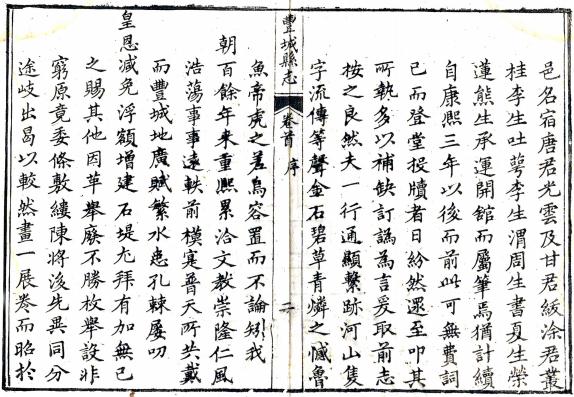 邑名宿唐君光雲及甘君紱涂君叢
桂李生吐萼李生渭周生書夏生榮
蓮熊生承運開館而屬筆焉猶計續
自康熙三年以後而前此可無費詞
已而登堂投牘者日紛然還至叩其
所執多以補缺訂譌為言爰取前志
按之良然夫一行通顯繫跡河山隻
字流傳等聲金石碧草青燐之憾魯
豐城縣志
卷首
序
二
魚帝虎之差烏容置而不論矧我
朝百餘年来重熙累洽文教崇隆仁風
浩蕩事事遠軼前模寔普天所共戴
而豐城地廣賦繁水患孔棘屢叨
皇恩减免浮額增建石堤尤拜有加無已
之賜其他因革舉廢不勝枚舉設非
窮原竟委條敷縷陳將後先異同分
途岐出曷以較然畫一展卷而昭於